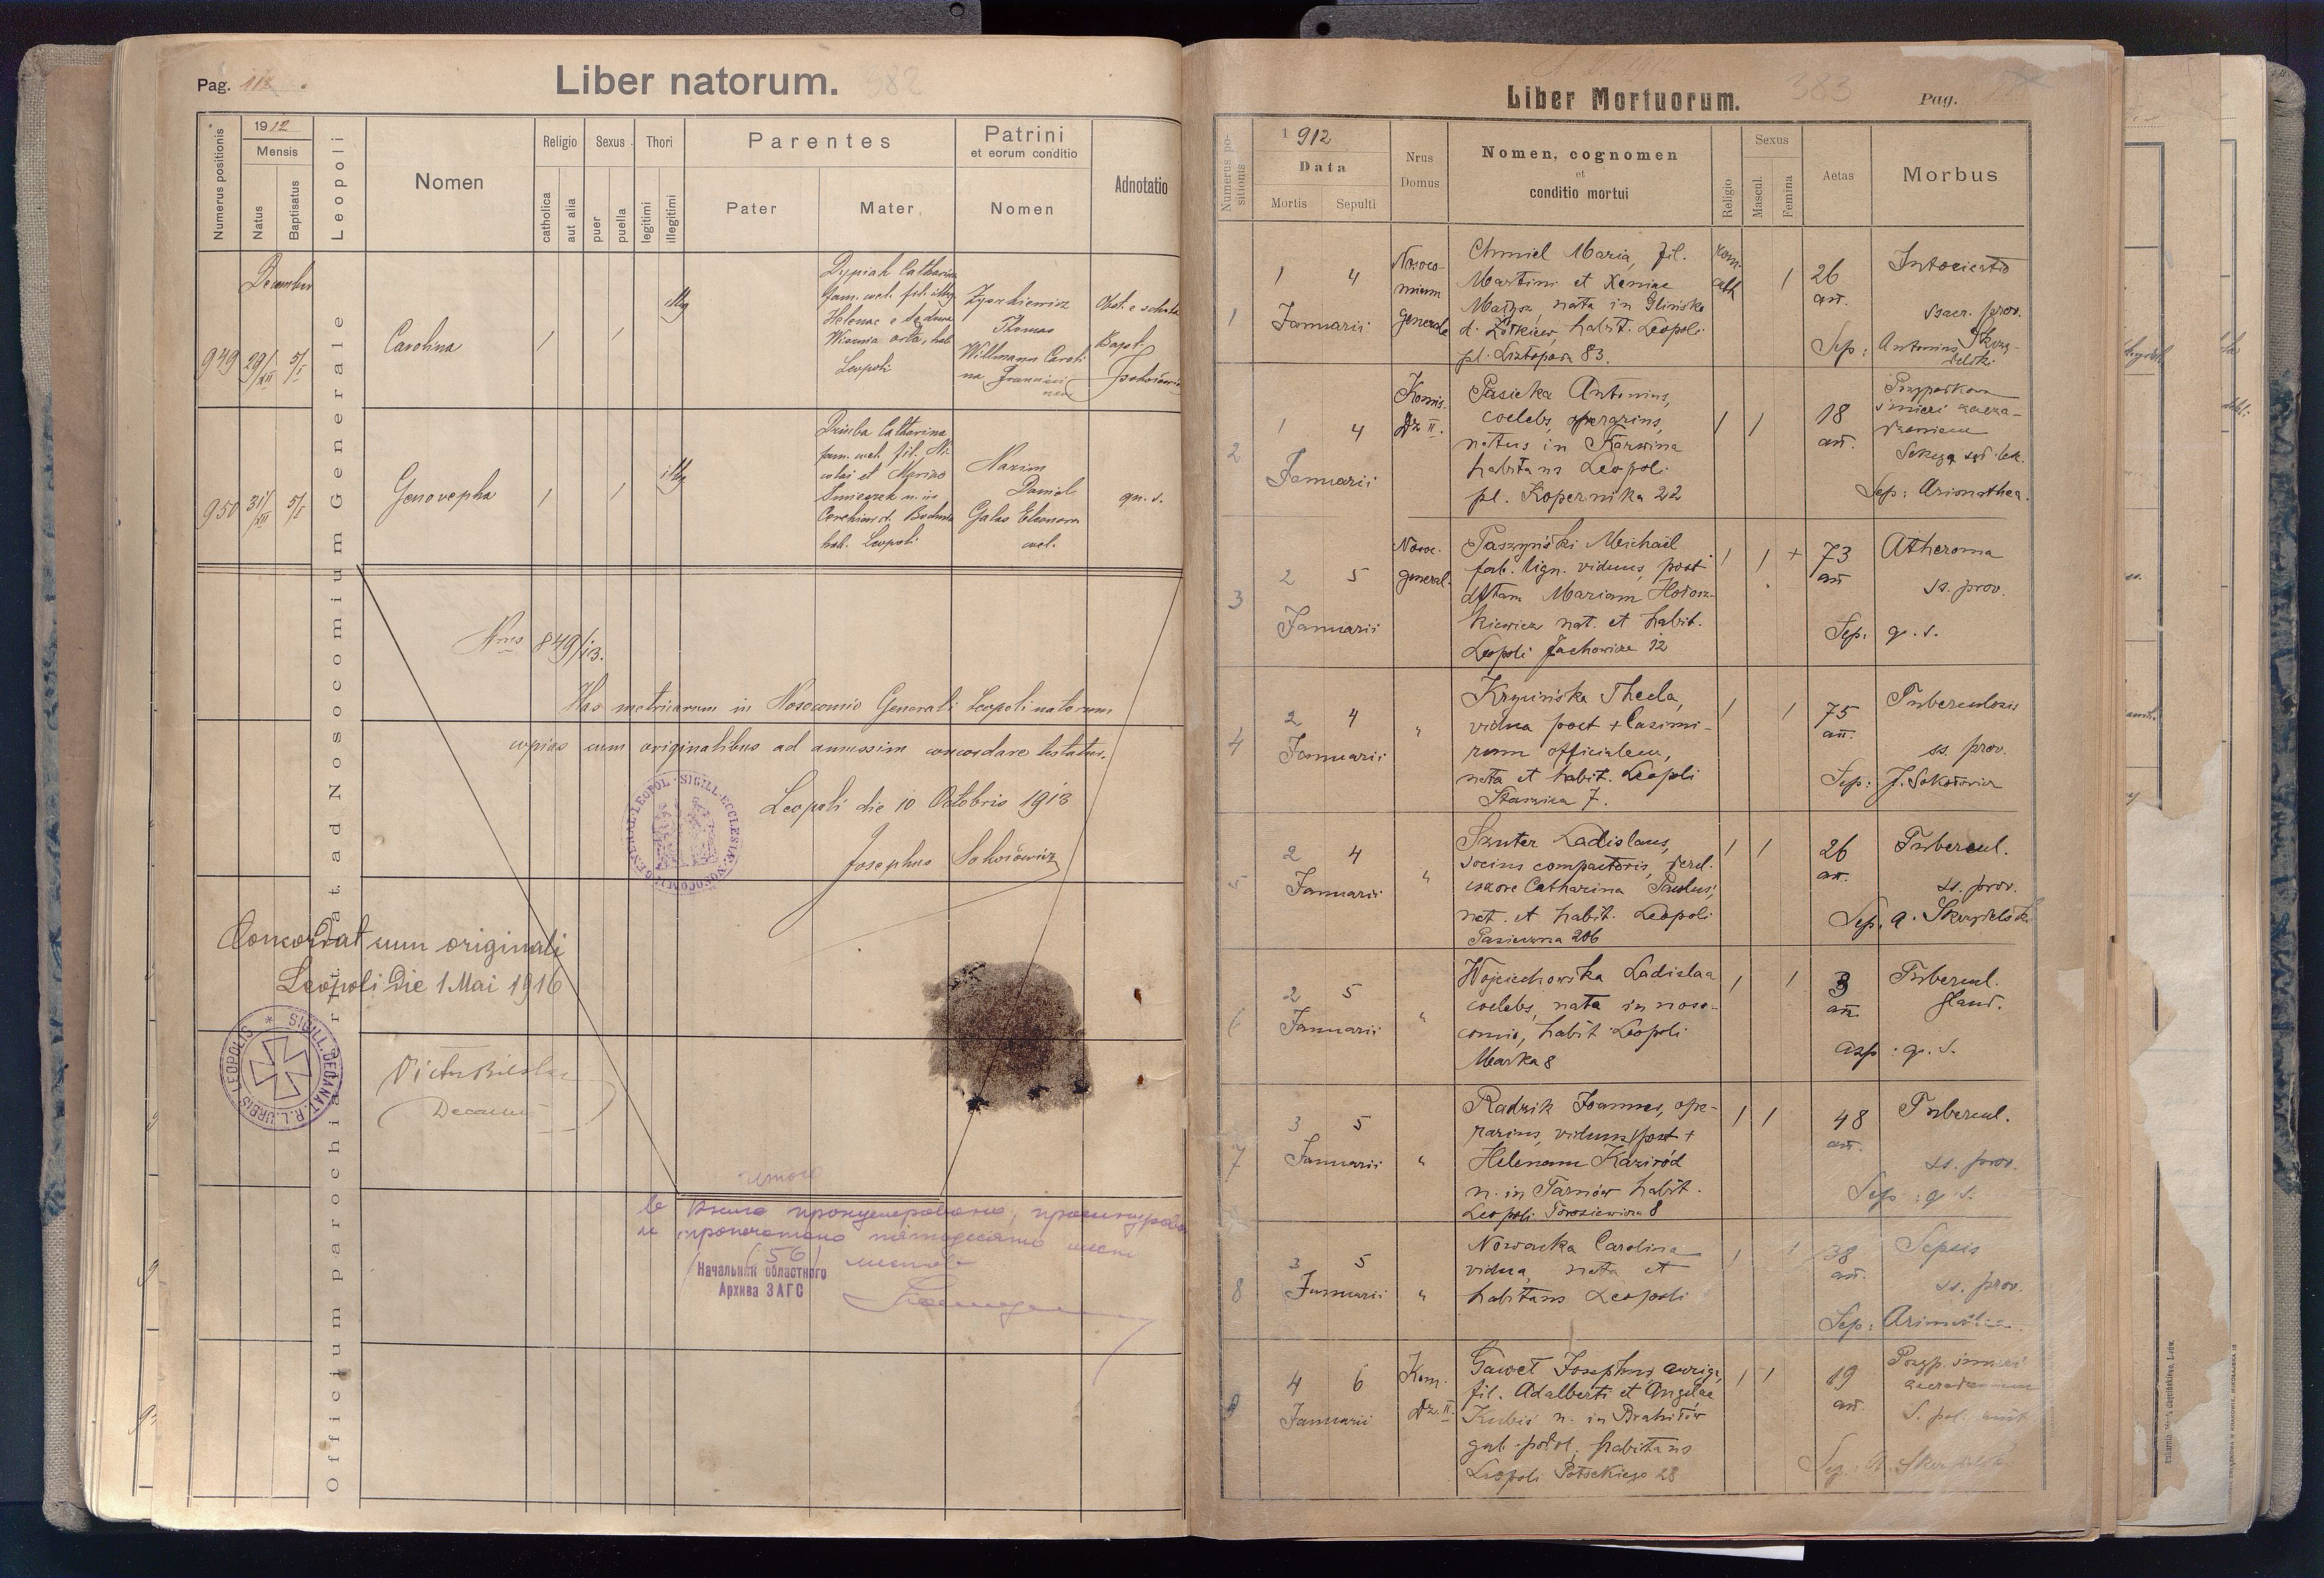 Pag. 112
Liber natorum.
382
Numerus positionis
1912
Mensis
Natus
Baptisatus
Leopoli
Nomen
Religio
catholica
aut alia
Sexus
puer
puella
Thori
legitimi
illegitimi
Parentes
Pater
Mater
Patrini
et eorum conditio
Nomen
Adnotatio
Officium parochiale r. l. ad Nosocomium Generale
December
949
29/XII
5/I
Carolina
/
/
illeg
Catharina
fam. cat. fil. illeg
Helenae e Sądowa
Wisznia orta, hab.
Leopoli
Thomas
Willmann Caroli
na
Obst. e schola
Bapt.
950
31/XII
5/I
Genovepha
/
/
illeg
Dziuba Catharina
fam. cat. fil. Ni
colai et
hab. Leopoli
Daniel
Galas Eleonora
qu. s.
Nrus 849/13.
Has metricarum in Nosocomio Generali Leopoli natorum
copias cum originalibus ad amussim concordare testatur.
Leopoli die 10 Octobris 1913
Josephus Sokołowicz
SIGILL. ECCLESIÆ NOSOCOMII GENERAL. LEOPOL.
Concordat cum originali
Leopoli die 1 Mai 1916
SIGILL. DECANAT. R. L. URBIS LEOPOLIS
Decanus
итого
в
и пропечатано пятьдесят шесть
(56) листов
Начальник областного
Архива ЗАГС
Liber Mortuorum.
383
Pag.
Numerus positionis
1912
Data
Mortis
Sepulti
Nrus
Domus
Nomen, cognomen
et
conditio mortui
Religio
Sexus
Mascul.
Femina
Aetas
Morbus
1
1 4
Januarii
Nosoco-
mium
Generale
Chmiel Maria, fil.
Martini et Xeniae
Małysz, nata in Glinsko
d. Żółkiew, habit. Leopoli
pl. Listopada 83.
rom.
cath
/
26
an.
sacr. prov.
Sep: Antonius Skrzy-
delski
2
1 4
Januarii
Komis.
Dz II.
Pasieka Antonius,
coelebs, operarius,
natus in Karwina
habitans Leopoli
pl. Kopernika 22
/
/
18
an.
Przypadkowa
śmierć zacza-
dzeniem
Sekcya sąd. lek.
Sep: Arimathea.
3
2 5
Januarii
Nosoc.
general.
Paszyński Michael
fab. lign. viduus, post
Mariam
nat. et habit.
Leopoli Jachowicza 12
/
/
+
73
an
Atheroma
ss. prov.
Sep: q. s.
4
2 4
Januarii
"
Thecla,
vidua post + Casimi-
rum officialem,
nata et habit. Leopoli
Staszica 7.
/
/
75
an.
Tuberculosis
ss. prov.
Sep: J. Sokołowicz
5
2 4
Januarii
"
Sznter Ladislaus,
socius compactoris, derel.
uxore Catharina Paulus,
nat. et habit. Leopoli
Pasieczna 206
/
/
26
an.
Tubercul.
ss. prov.
Sep. A. Skrzydelski
6
2 5
Januarii
"
Wojciechowska Ladislaa
coelebs, nata in noso-
comio, habit Leopoli
Marka 8
/
/
3
an.
Tubercul.
gland.
asp: q. s.
7
3 5
Januarii
"
Radzik Joannes, ope-
rarius, viduus post +
Helenam Kaziród
n. in Tarnów habit.
Leopoli Torosiewicza 8
/
/
48
an.
Tubercul.
ss. prov.
Sep: q. s.
8
3 5
Januarii
"
Nowacka Carolina
vidua, nata et
habitans Leopoli
/
/
38
an.
Sepsis
ss. prov.
Sep:
9
4 6
Januarii
Kom.
Dz. II.
Gaweł Josephus, auriga,
fil. Adalberti et Angelae
Kubiś n. in
gub. podol. habitans
Leopoli Potockiego 28
/
/
19
an.
Przyp. śmierć
Sep: A. Skrzydelski